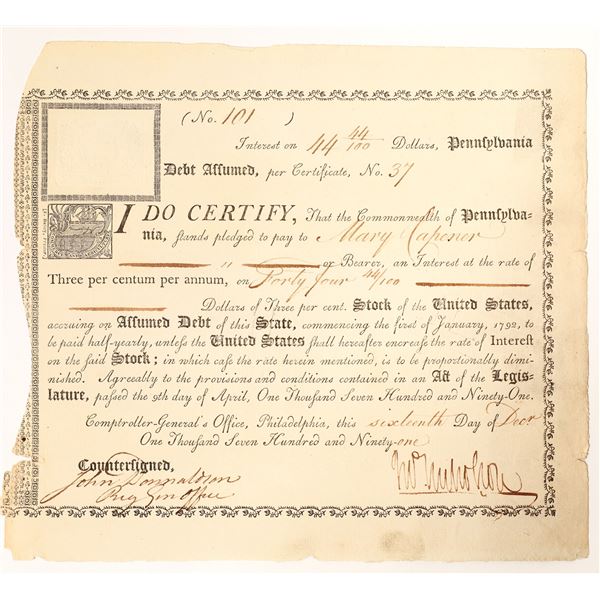 (No. 101 )
Intereſt on 44 44/100 Dollars, Pennſylvania
Debt Aſſumed, per Certificate, No. 37
I DO CERTIFY, That the Commonwealth of Pennſylva-
nia, ſtands pledged to pay to Mary Capener
" or Bearer, an Intereſt at the rate of
Three per centum per annum, on Forty four 44/100
Dollars of Three per cent. Stock of the United States,
accruing on Aſſumed Debt of this State, commencing the firſt of January, 1792, to
be paid half-yearly, unleſs the United States ſhall hereafter encreaſe the rate of Intereſt
on the ſaid Stock; in which caſe the rate herein mentioned, is to be proportionally dimi-
niſhed. Agreeably to the proviſions and conditions contained in an Act of the Legis-
lature, paſſed the 9th day of April, One Thouſand Seven Hundred and Ninety-One.
Comptroller-General's Office, Philadelphia, this sixteenth Day of Decr
One Thouſand Seven Hundred and Ninety-one
Counterſigned,
John Donnaldson
Reg Gen Office
Jno Nicholson